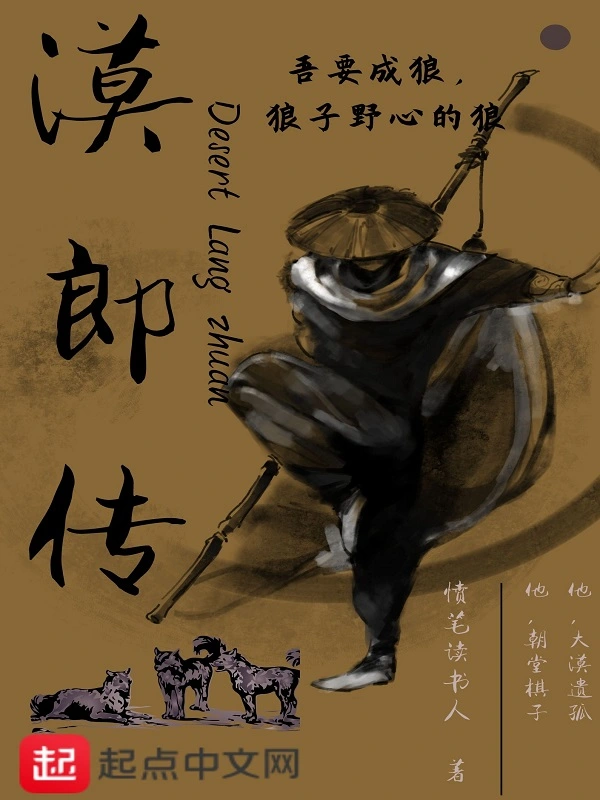 漠郎传
Desert Lang zhuan
吾要成狼，
狼子野心的狼
他，大漠遗孤
他，朝堂棋子
愤笔读书人 著
起 起点中文网